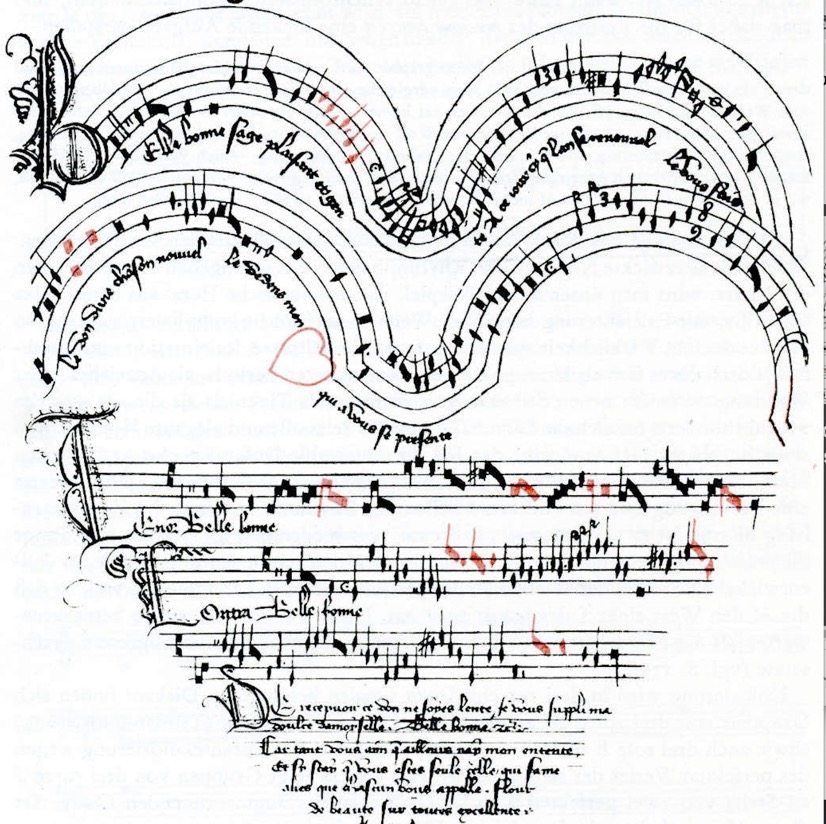 Elle bonne sage plaisant et gen
te A ce jour cy q̄ lan se renouuel
A vous fais
le don dune chanson nouuel
le Dedens mon
qui a vous se presente
Enor Belle bonne
Ontra Belle bonne
De recepuoir ce don ne soyes lente Je vous suppli ma
doulce damoyselle. Belle bonne &c.
Car tant vous aim quaillours nay mon entente
Et si scay q̄ vous estes seule celle qui fame
aves que chascun vous appelle. Flour
de beaute sur toutes excellente